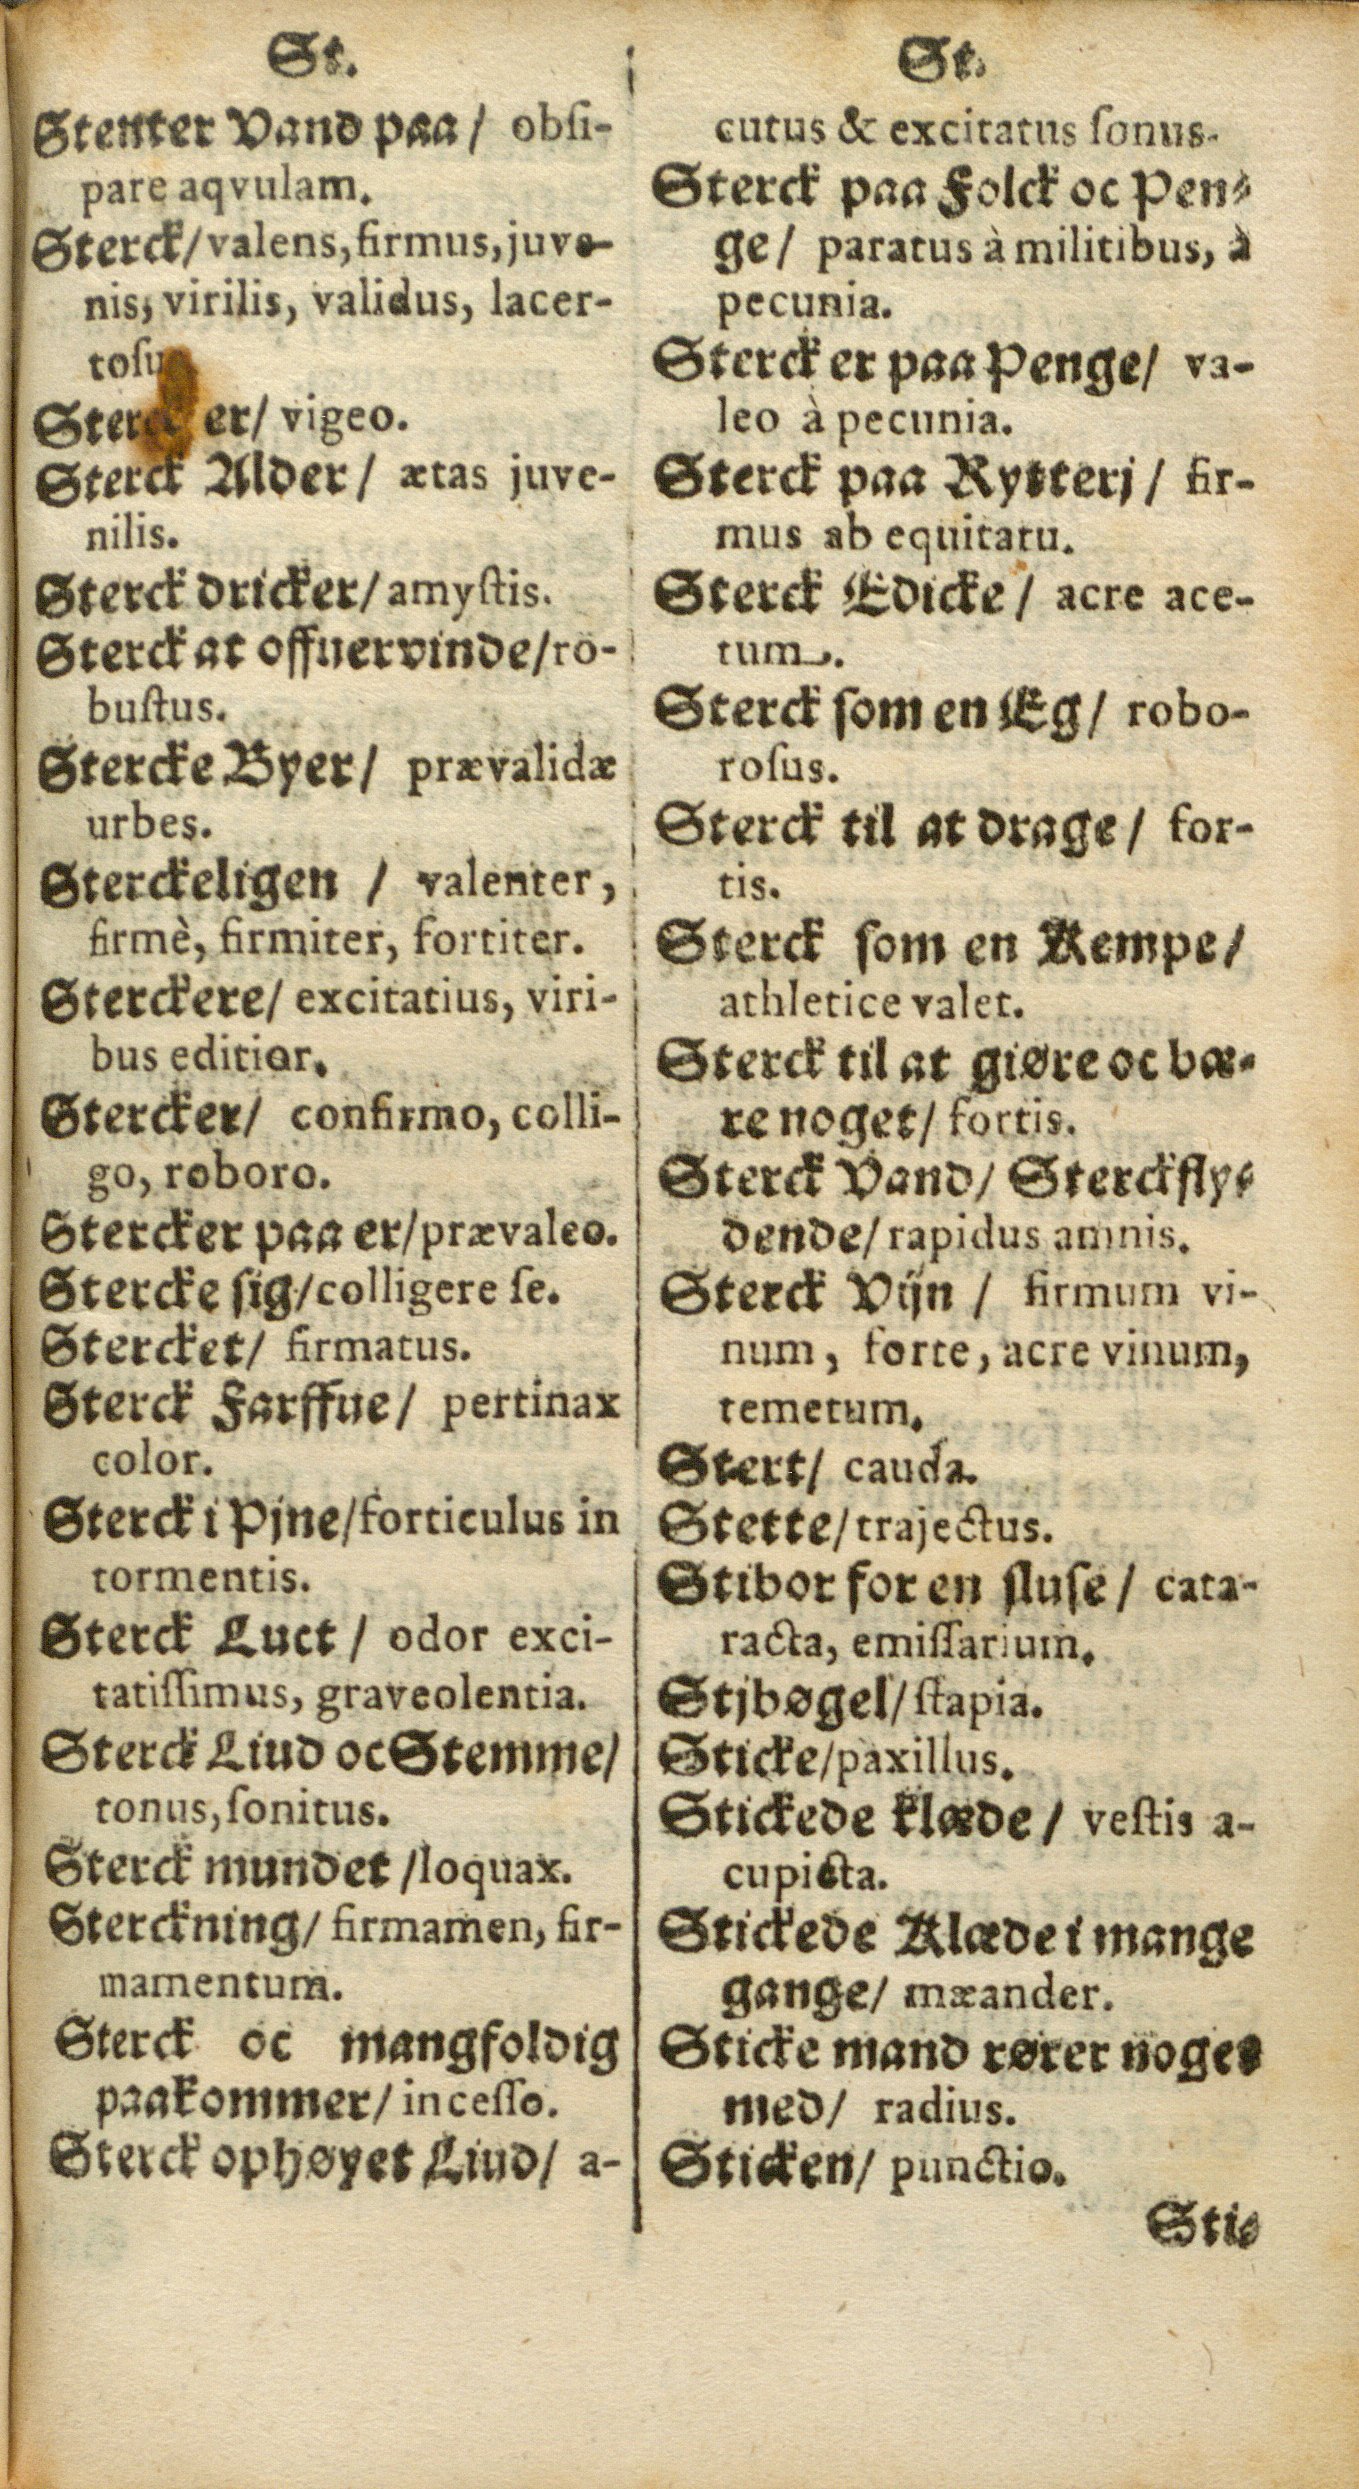 St.
Stenter Vand paa/ obſi-
pare aqvulam.
Sterck/ valens, firmus, juve-
nis, virilis, validus, lacer-
toſu
Sterck er/ vigeo.
Sterck Alder/ ætas juve-
nilis.
Sterck dricker/ amyſtis.
Sterck at offuervinde/ ro-
buſtus.
Stercke Byer/ prævalidæ
urbes.
Sterckeligen / valenter,
firmè, firmiter, fortiter.
Sterckere/ excitatius, viri-
bus editior.
Stercker/ confirmo, colli-
go, roboro.
Stercker paa er/ prævaleo.
Stercke sig/ colligere ſe.
Stercket/ firmatus.
Sterck Farffue/ pertinax
color.
Sterck i Pjne/ forticulus in
tormentis.
Sterck Luct/ odor exci-
tatiſſimus, graveolentia.
Sterck Liud oc Stemme/
tonus, ſonitus.
Sterck mundet /loquax.
Sterckning/ firmamen, fir-
mamentum.
Sterck oc mangfoldig
paakommer/ inceſſo.
Sterck ophøyet Liud/ a-
St.
cutus & excitatus ſonus.
Sterck paa Folck oc Pen-
ge/ paratus à militibus, à
pecunia.
Sterck er paa Penge/ va-
leo à pecunia.
Sterck paa Rytterj/ fir-
mus ab equitatu.
Sterck Edicke/ acre ace-
tum.
Sterck ſom en Eg/ robo-
roſus.
Sterck til at drage/ for-
tis.
Sterck ſom en Kempe/
athletice valet.
Sterck til at giøre oc bæ-
re noget/ fortis.
Sterck Vand/ Sterckfly-
dende/ rapidus amnis.
Sterck Vijn / firmum vi-
num, forte, acre vinum,
temetum.
Stert/ cauda.
Stette/ trajectus.
Stibor for en ſluſe/ cata-
racta, emiſſarium.
Stjbøgel/ ſtapia.
Sticke/ paxillus.
Stickede klæde/ veſtis a-
cupicta.
Stickede Klæde i mange
gange/ mæander.
Sticke mand rører noget
med/ radius.
Sticken/ punctio.
Sti-